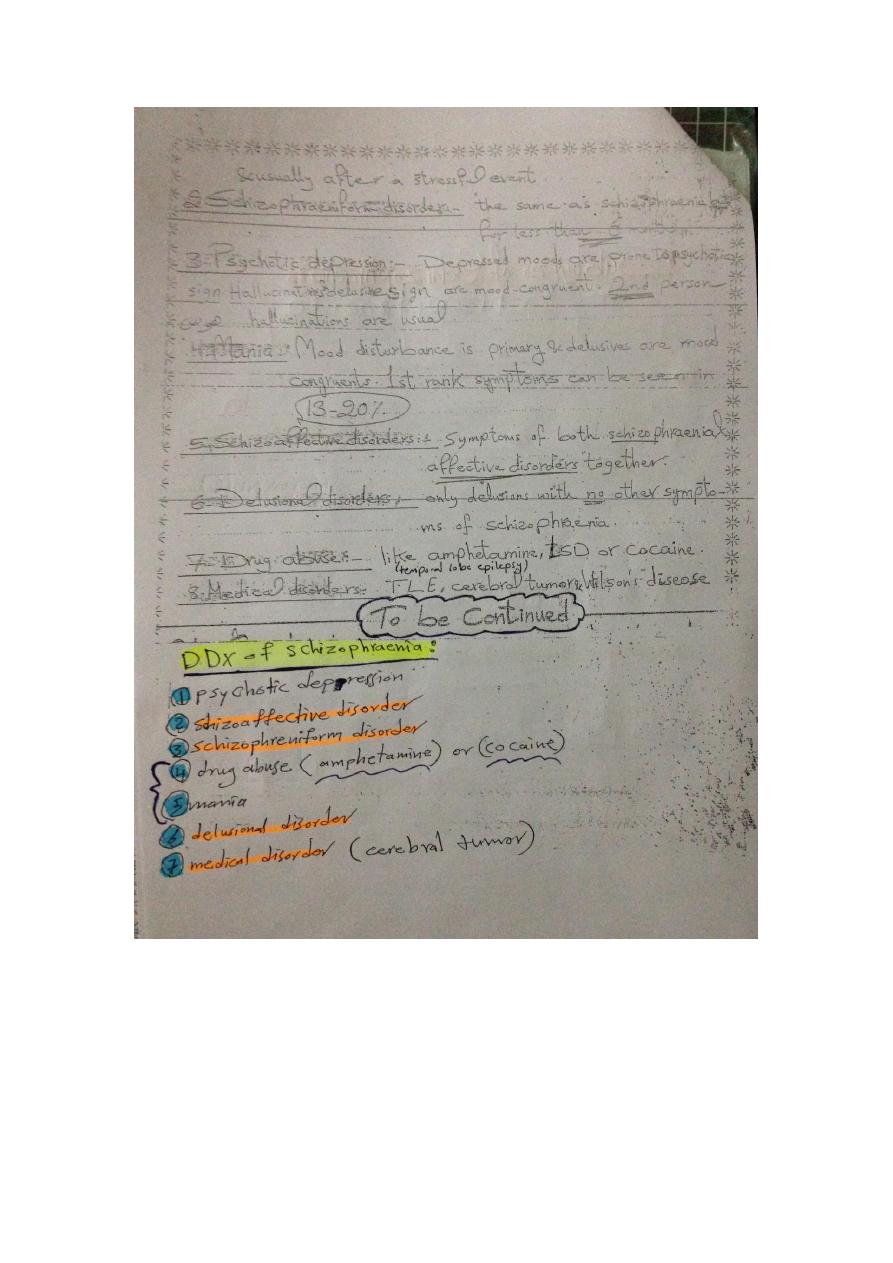 & usually after a stressful event
2. Schizophraeniform disorders:- the same as schizophraenia
for less than 6 months.
3-Psychotic depression:- Depressed moods are prone to psychotic
sign Hallucinations delusive sign are mood-congruent. 2nd person
hallucinations are usual
4. Mania: Mood disturbance is primary & delusives are mood
congruents. 1st rank symptoms can be seen in
13-20%
5. Schizoaffective disorders: Symptoms of both schizophraenia &
affective disorders together.
6-Delusional disorders:- only delusions with no other sympto-
ms of schizophraenia.
7- Drug abuse:- like amphetamine, LSD or cocaine.
(temporal lobe epilepsy)
8. Medical disorders:- TLE, cerebral tumor & Wilson's disease
To be Continued
D.Dx of schizophraenia:
1 psychotic depression
2 shizoaffective disorder
3 schizophreniform disorder
4 drug abuse (amphetamine) or (cocaine)
5 mania
6 delusional disorder
7 medical disorder (cerebral tumor)